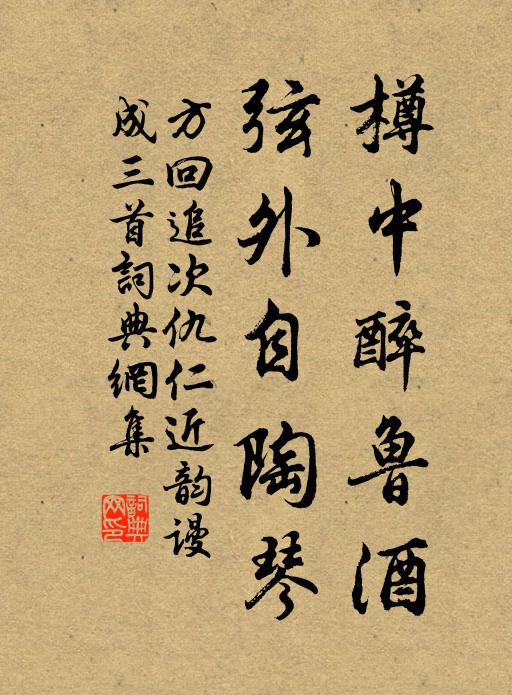 樽中醉魯酒
弦外自陶琴
方回追次仇仁近韵谩
成三首詞典網集
詞典
网印